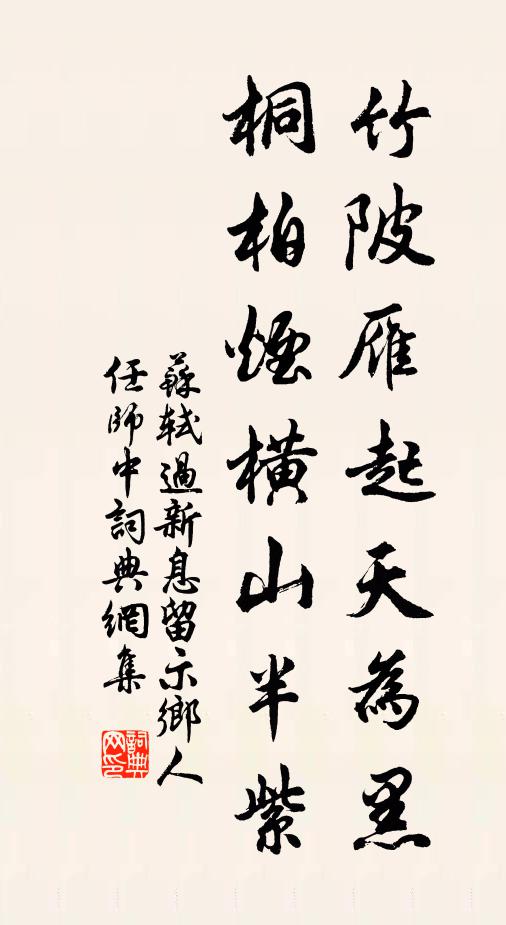 竹陂雁起天為黑
桐柏煙橫山半紫
蘇軾過新息留示鄉人
任師中詞典網集
詞典网印